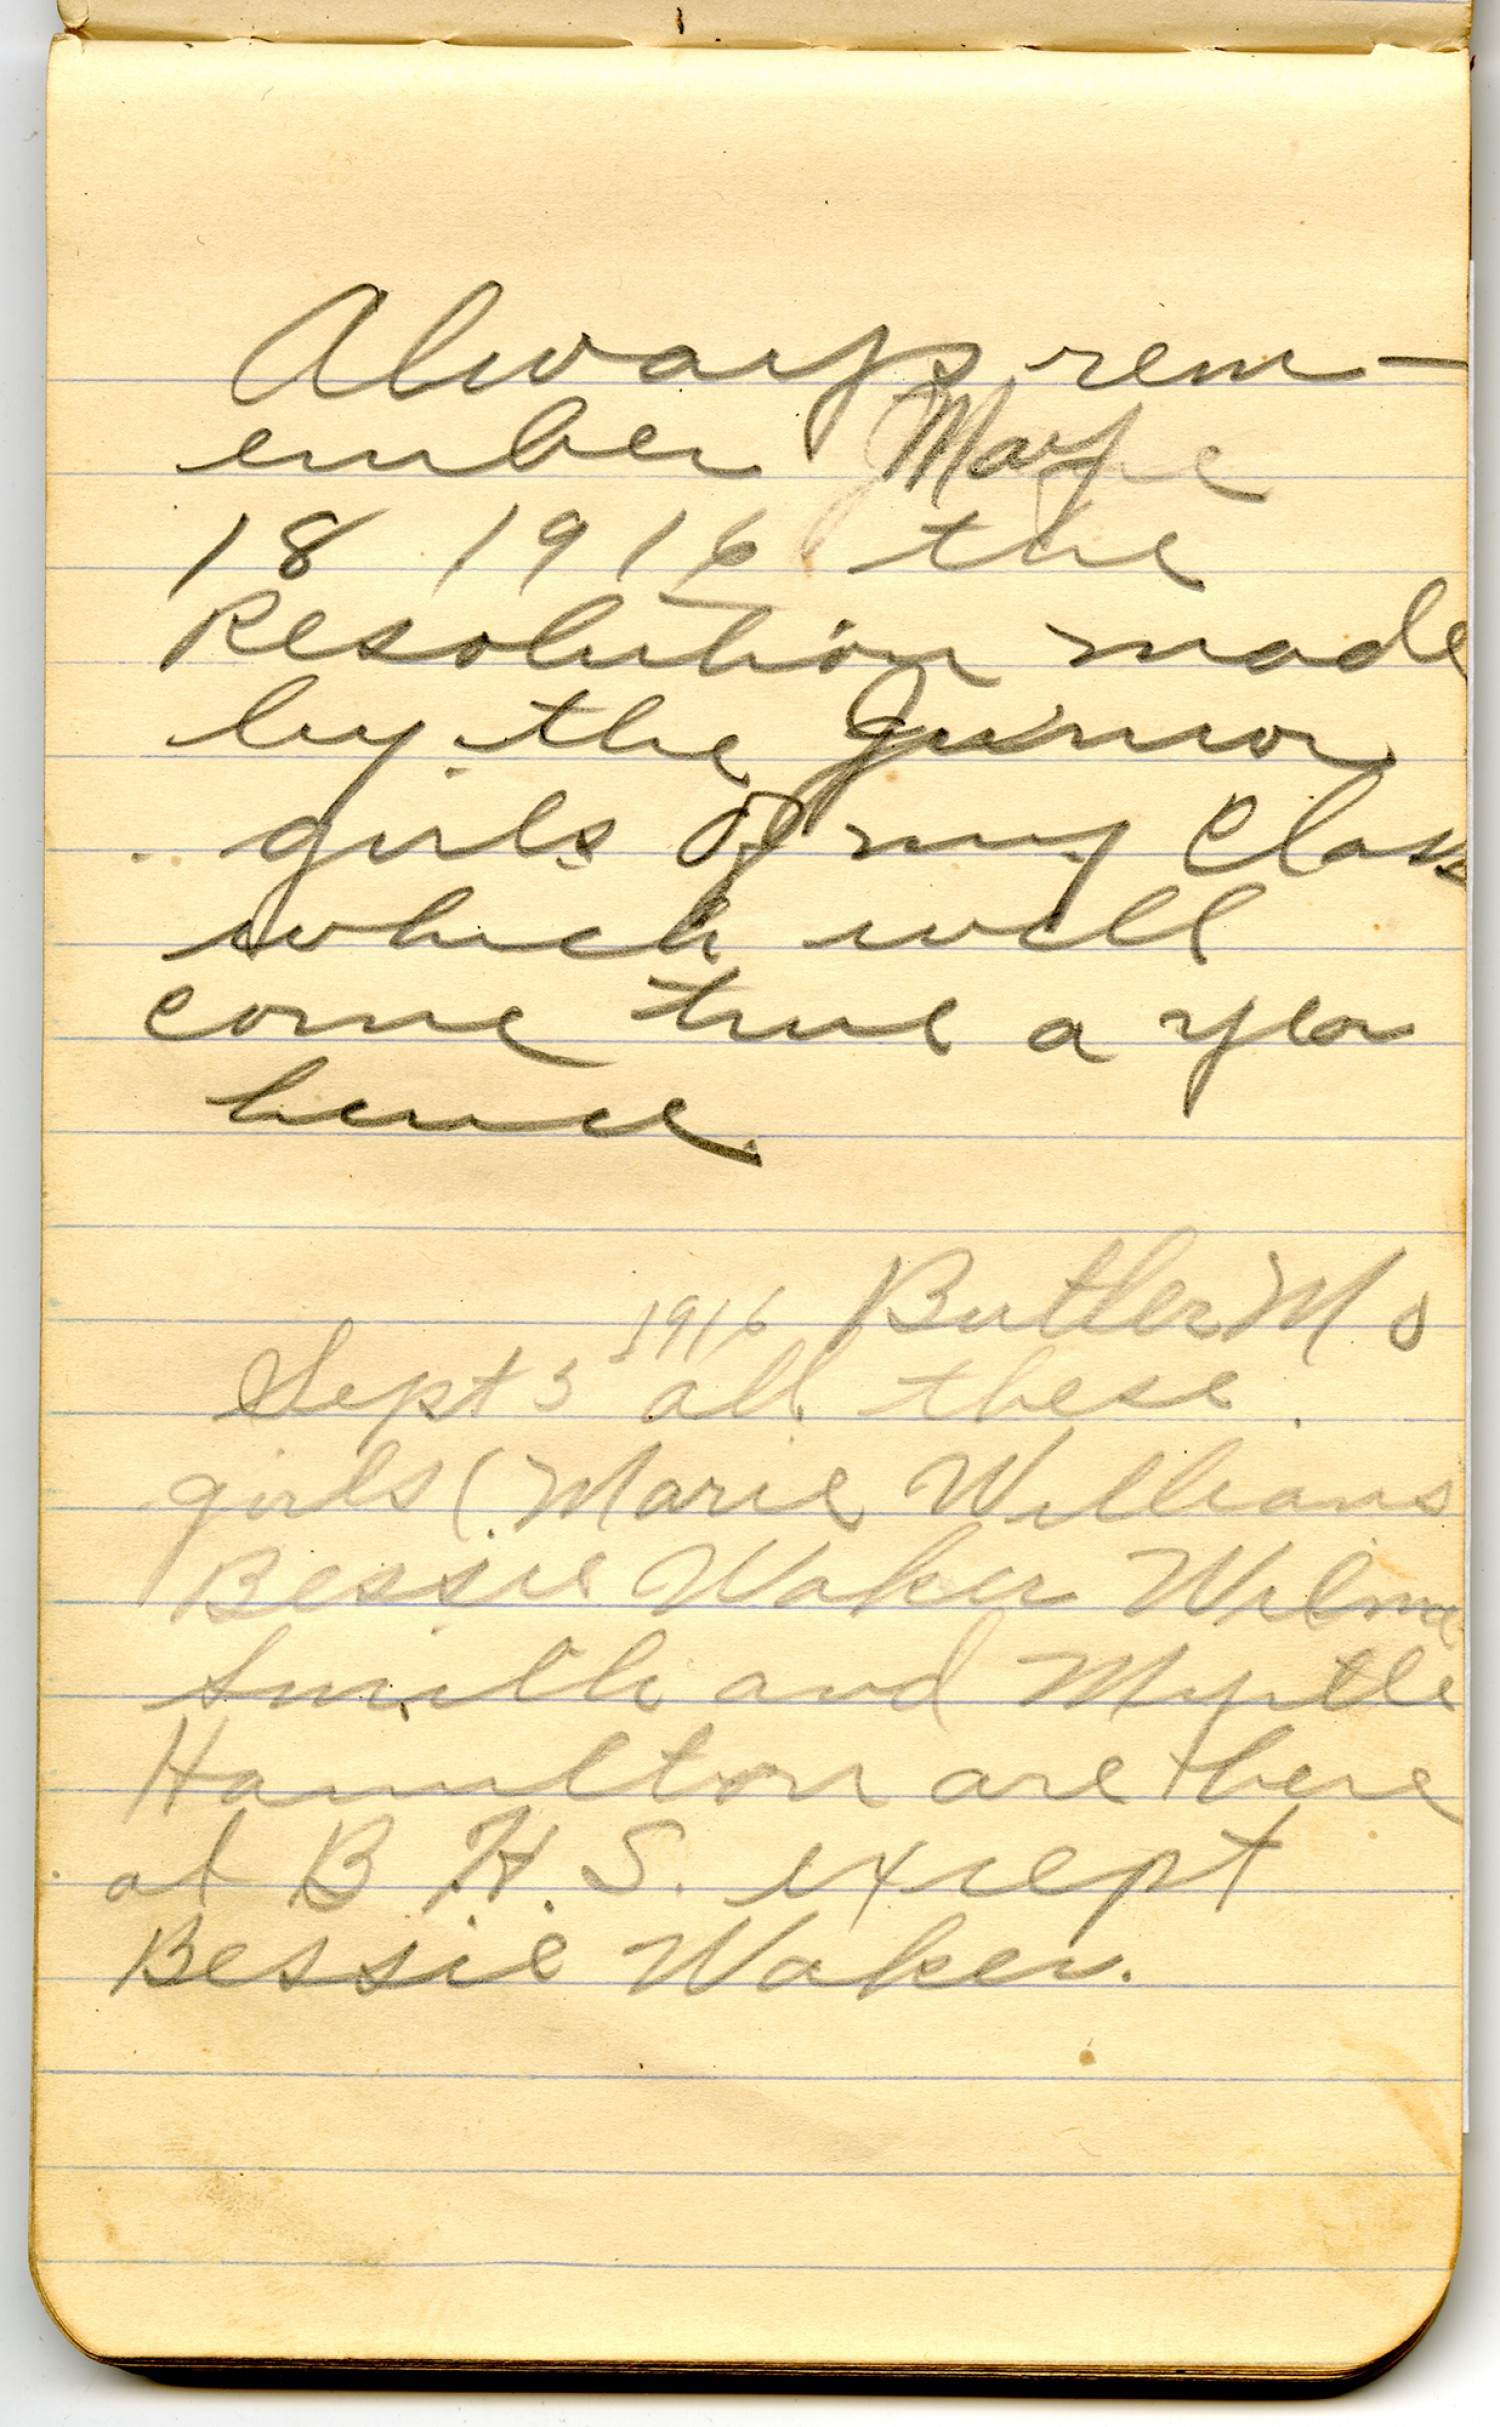 Always rem-
ember May
18 1916 the
Resolution made
by the Junior
girls of my Class
which will
come true a year
hence.
1916 Butler Mo
Sept 3 all these
girls (Marie Williams
Bessie Waker Wilma
Smith and Myrtle
Hamilton are there
at B. H. S. except
Bessie Waker.